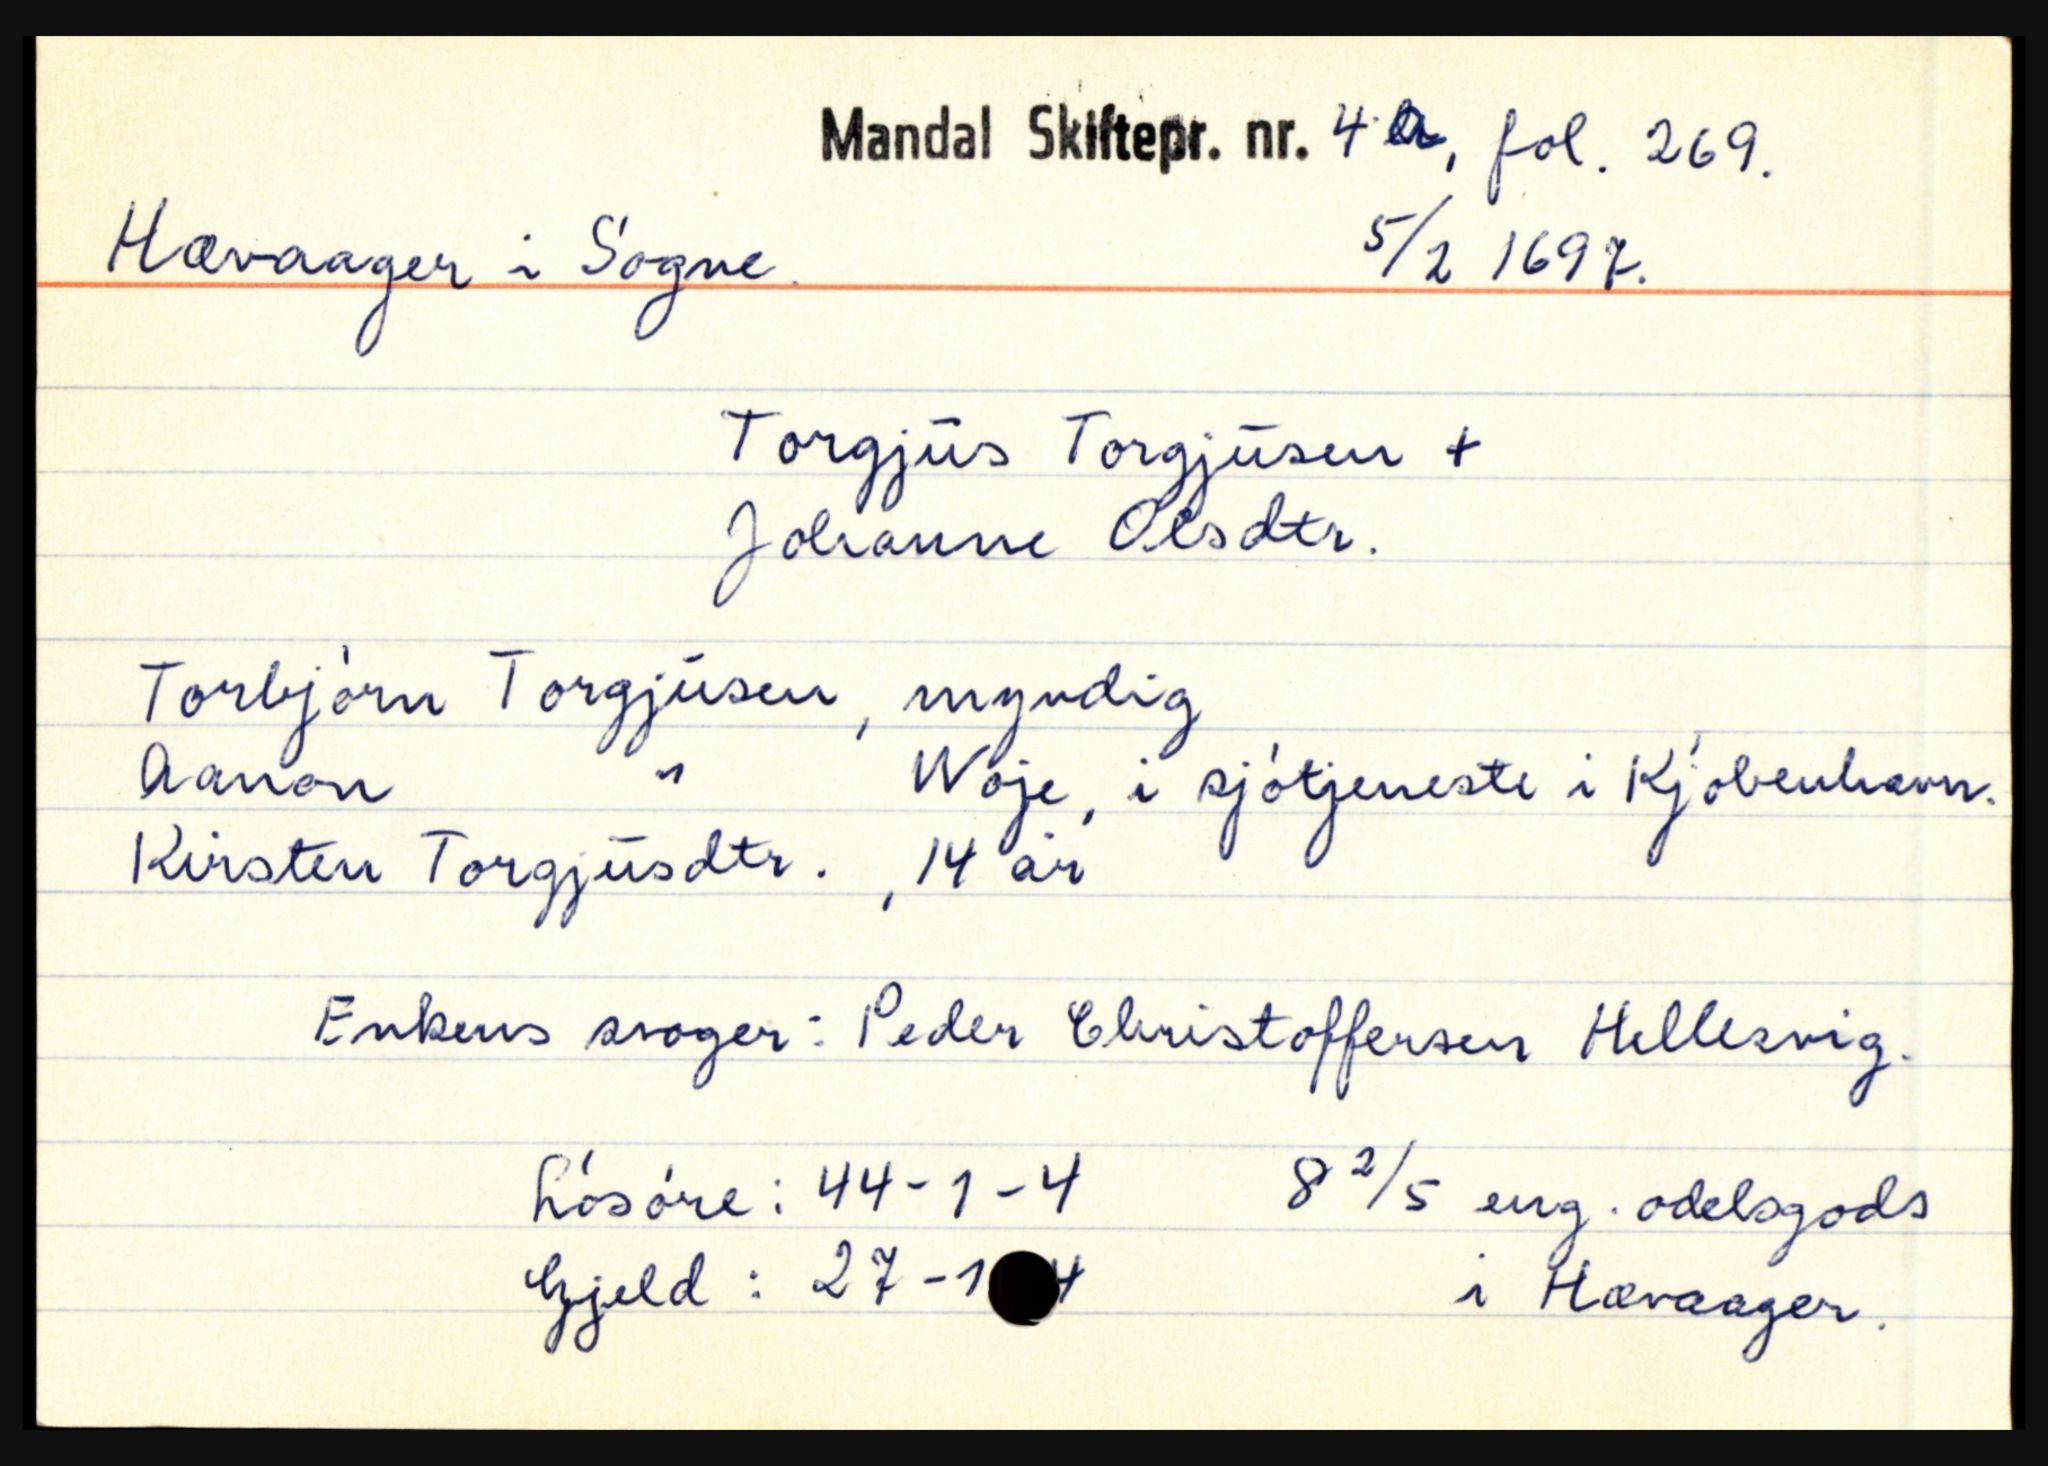 Mandal Skiftepr. nr. 4 a, fol. 269.
Hævaager i Søgne. 5/2 1697.
Torgjus Torgjusen +
Johanne Olsdtr.
Torbjørn Torgjusen, myndig
Aanon " Woje, i sjøtjeneste i Kjøbenhavn.
Kirsten Torgjusdtr. , 14 år
Enkens svoger: Peder Christoffersen Hellesvig.
Løsøre: 44-1-4 8 2/5 eng. odelsgods
Gjeld: 27-1 4 i Hævaager.